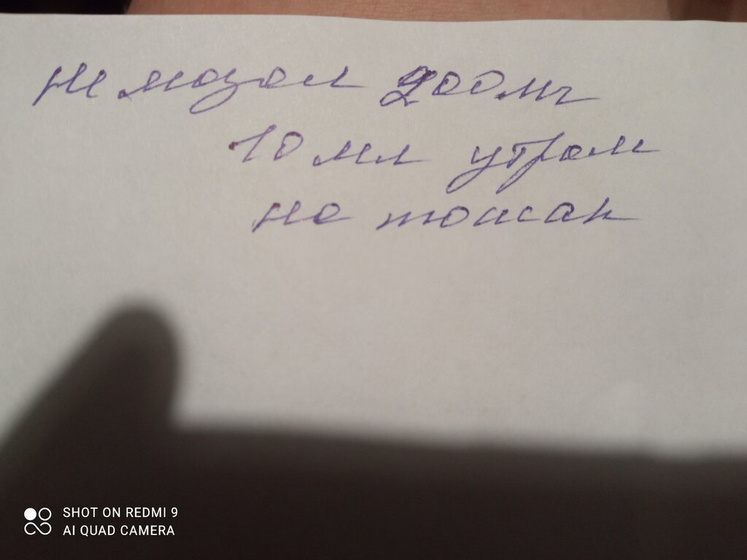 Немозол 200мг
10 мл утром
на тощак
SHOT ON REDMI 9
AI QUAD CAMERA